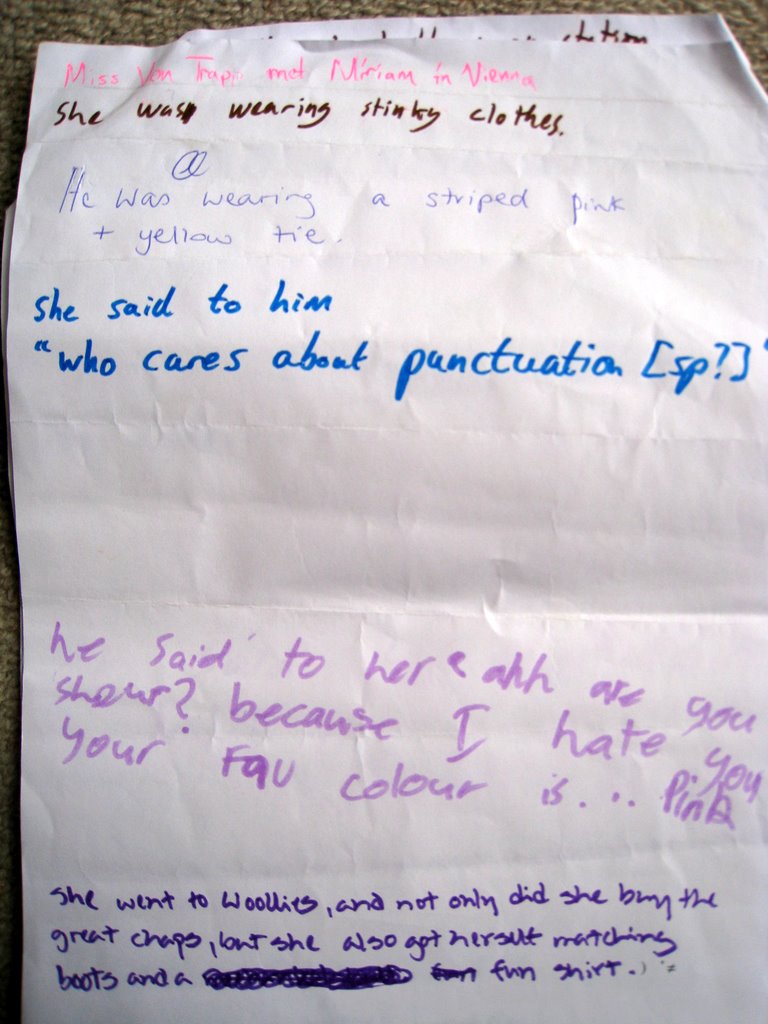 station
Miss Von Trapp met Miriam in Vienna
She was wearing stinky clothes.
He was wearing a striped pink
+ yellow tie.
She said to him
"who cares about punctuation [sp?]"
he said to her "ahh are you
shour? because I hate you
your Fav colour is... Pink
She went to Woollies, and not only did she buy the
great chaps, but she also got herself matching
boots and a fun shirt.